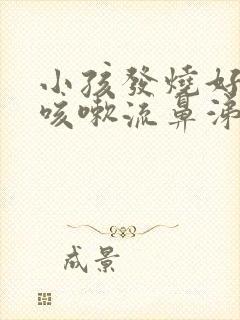 小孩發燒好
咳嗽流鼻涕
成景